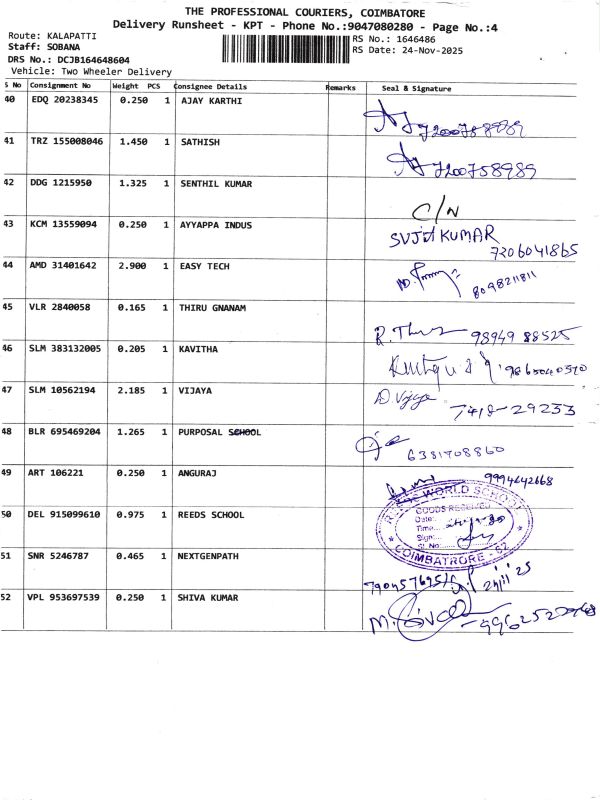 THE PROFESSIONAL COURIERS, COIMBATORE
Delivery Runsheet - KPT - Phone No.:9047080280 - Page No.:4
Route: KALAPATTI
RS No.: 1646486
Staff: SOBANA
RS Date: 24-Nov-2025
DRS No.: DCJB164648604
Vehicle: Two Wheeler Delivery
S No Consignment No Weight PCS Consignee Details Remarks Seal & Signature
40 EDQ 20238345 0.250 1 AJAY KARTHI
7200758989
41 TRZ 155008046 1.450 1 SATHISH
7200758989
42 DDG 1215950 1.325 1 SENTHIL KUMAR
C/N
43 KCM 13559094 0.250 1 AYYAPPA INDUS
KUMAR
7206041865
44 AMD 31401642 2.900 1 EASY TECH
8098211811
45 VLR 2840058 0.165 1 THIRU GNANAM
98949 88525
46 SLM 383132005 0.205 1 KAVITHA
47 SLM 10562194 2.185 1 VIJAYA
48 BLR 695469204 1.265 1 PURPOSAL SCHOOL
6381708860
49 ART 106221 0.250 1 ANGURAJ
9994642668
50 DEL 915099610 0.975 1 REEDS SCHOOL
REEDS WORLD SCHOOL
GOODS RECEIVED
Date:
Time:
Sign:
Sl. No:
51 SNR 5246787 0.465 1 NEXTGENPATH
24/11/25
52 VPL 953697539 0.250 1 SHIVA KUMAR